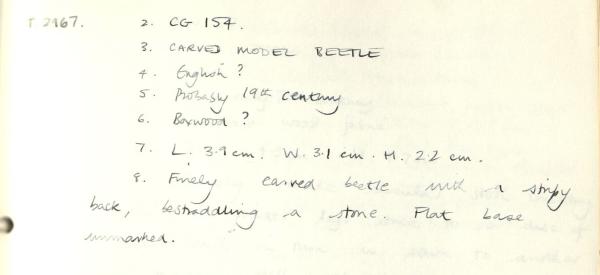 T 2967. 2. CG 154.
3. CARVED MODEL BEETLE
4. English ?
5. Probably 19th century
6. Boxwood ?
7. L. 3.9 cm. W. 3.1 cm. H. 2.2 cm.
8. Finely carved beetle with a stripy
back, bestraddling a stone. Flat base
unmarked.